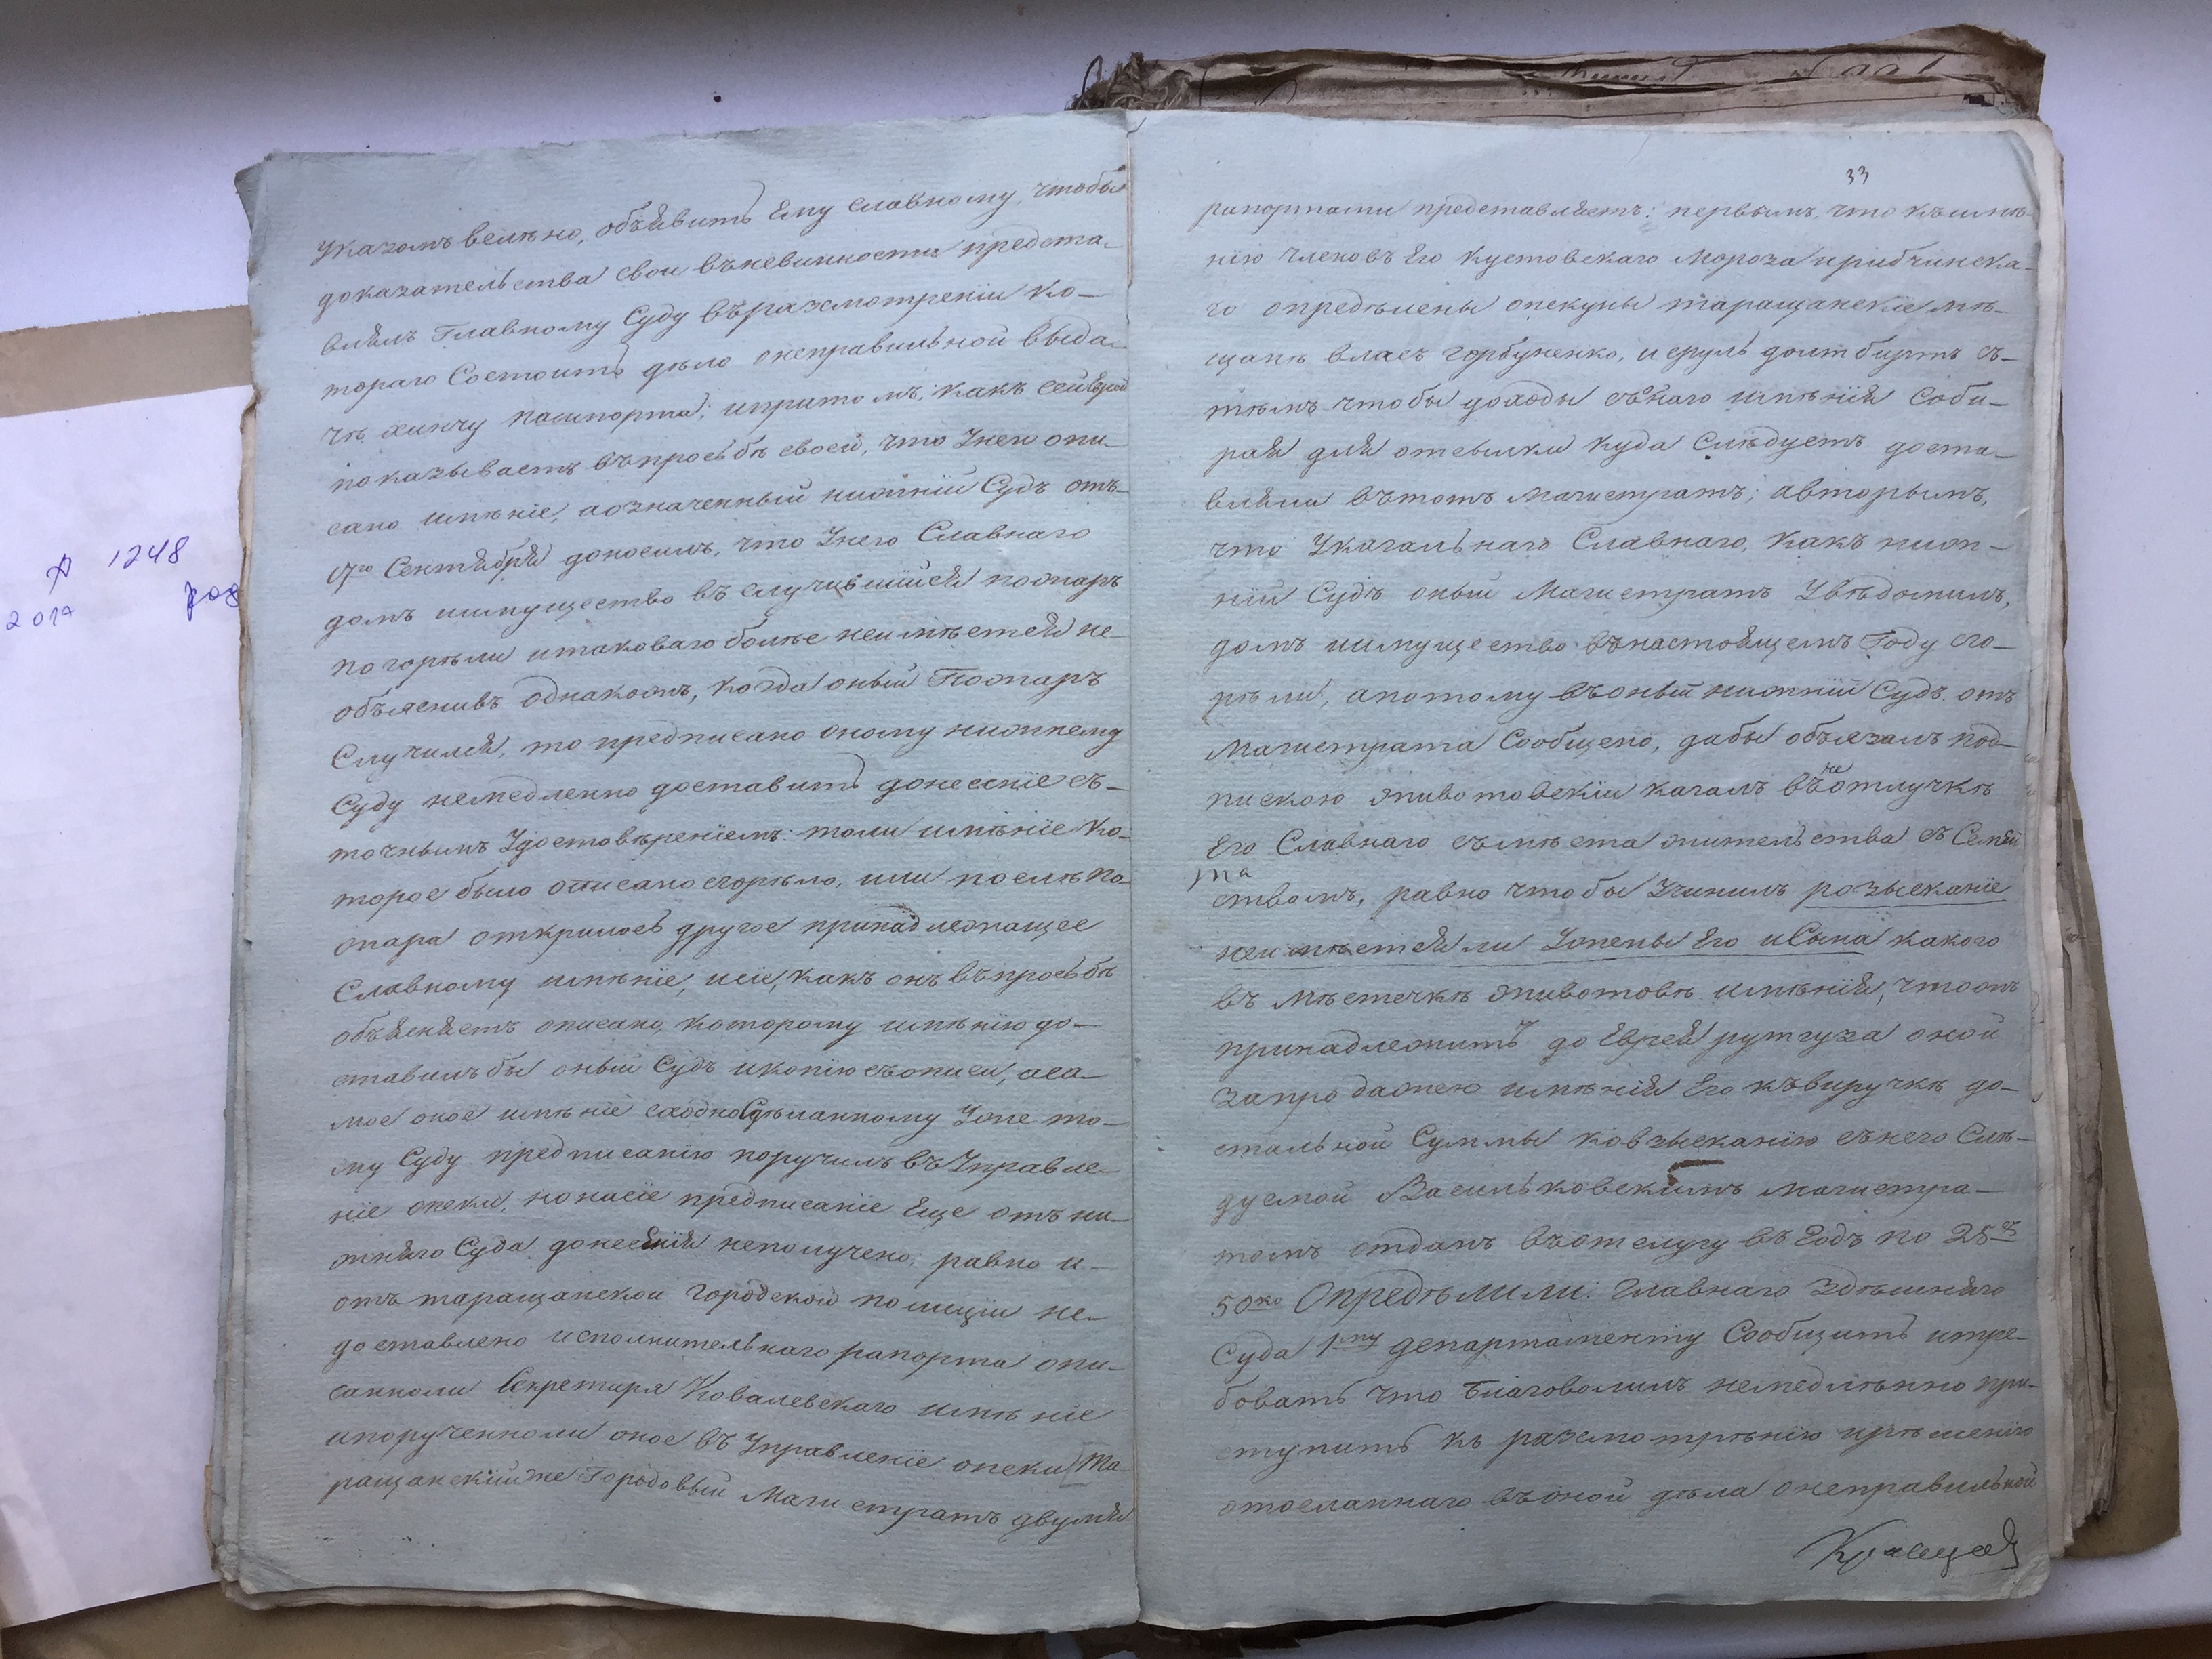 указомъ велѣно, объявить Ему Славному, чтобы
доказательства свои въневинности предста-
влялъ Главному Суду въразсмотреніи ко-
тораго Состоитъ дѣло онеправильной выда-
чѣ хинчу пашпорта; ипритомъ, какъ сей
показываетъ въпросьбѣ своей, что Унего опи-
сано имѣніе, аозначенный нижній Судъ отъ-
17го Сентября доносилъ, что Унего Славнаго
домъ иимущество въ случившійся пожаръ
погорѣли итаковаго более неимѣется не-
объяснивъ однакожъ, когда оный Пожаръ
Случился, то предписано оному нижнему
Суду немедленно доставить донесеніе съ-
точнымъ Удостовѣреніемъ: толи имѣніе ко-
торое было описано сгорѣло, или послѣ по-
жара открилось другое принадлежащее
Славному имѣніе, исіе, какъ онъ въпросьбѣ
объясняетъ описано, которому имѣнію до-
ставилъбы оный Судъ икопію съописи, аса-
мое оное имѣніе сходно Сдѣланному Уже то-
му Суду предписанію поручилъ въ Управле-
ніе опеки, нонасіе предписаніе Еще отъ ни-
жняго Суда донесенія неполучено, равно и-
отъ таращанской городской полиціи не-
доставлено исполнительнаго рапорта опи-
санноли Секретаря Ковалевскаго имѣніе
ипорученноли оное въ Управленіе опеки [Та-
ращанскій же Городовый Магистратъ двумя
33
рапортами представляетъ: первымъ, что къимѣ-
нію членовъ Его Кустовскаго Мороза ирибчинска-
го опредѣлены опекуны таращанскіе мѣ-
щане власъ горбуненко, исруль долтбиртъ съ-
тѣмъ чтобы доходы съонаго имѣнія Соби-
рая для отсылки куда Слѣдуетъ доста-
вляли вътотъ Магистратъ; авторымъ,
что Укагальнаго Славнаго, какъ ниж-
ній Судъ оный Магистратъ Увѣдомилъ,
домъ иимущество внастоящемъ Году сго-
рѣли, апотому въоный нижній Судъ отъ
Магистрата Сообщено, дабы обязалъ под-
пискою животовскій кагалъ въ не отлучкѣ
Его Славнаго съмѣста жительства съ Семей
ства
ствомъ, равно чтобы Учинилъ розысканіе
неимѣется ли Ужены Его иСына какого
въ мѣстечкѣ животовѣ имѣнія, чтожъ
принадлежитъ до Еврея рутгуза оной
запродажею имѣнія Его къвиручкѣ до-
стальной Суммы ковзысканію снего Слѣ-
дуемой Васильковскимъ магистра-
томъ отданъ въотслугу въ Годъ по 25 р
50 ко Опредѣлили: Главнаго здѣшняго
Суда 1му департаменту Сообщить итре-
бовать что благоволилъ немедлѣнно при-
ступить къ разсмотрѣнію ирѣшенію
отосланнаго въоной дѣла онеправильной
А 1248
2017